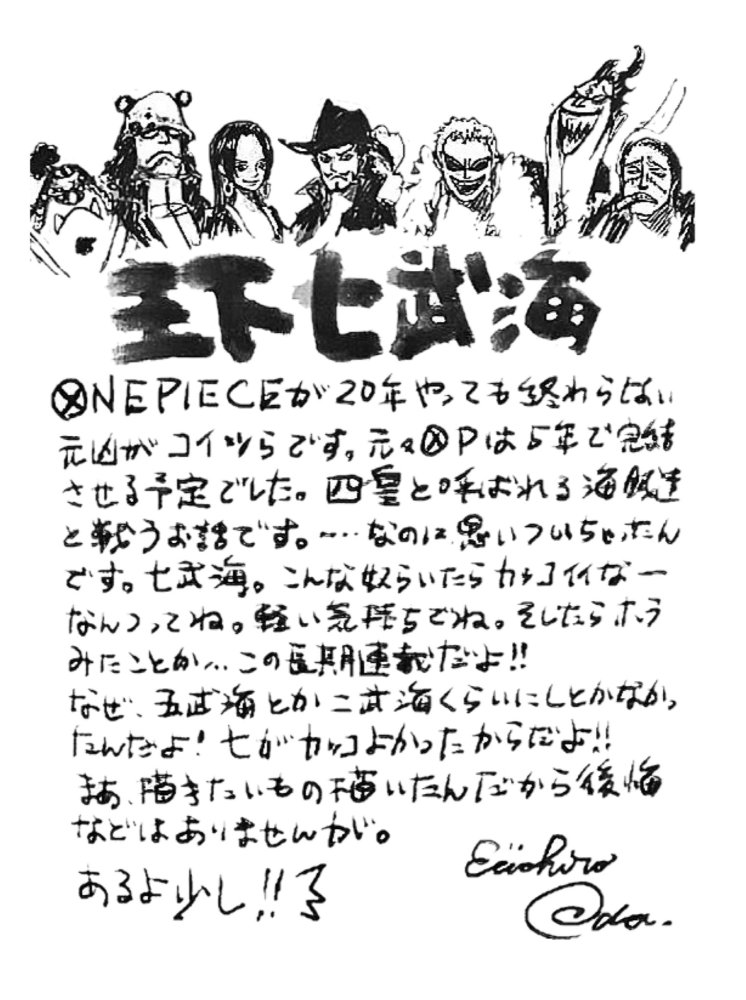 王下七武海
ONE PIECEが20年やっても終わらない
元凶がコイツらです。元々OPは5年で完結
させる予定でした。四皇と呼ばれる海賊達
と戦うお話です。……なのに思いついちゃったん
です。七武海。こんな奴らいたらカッコイイなー
なんつってね。軽い気持ちでね。そしたらホラ
みたことか…この長期連載だよ!!
なぜ、五武海とか二武海くらいにしとかなかっ
たんだよ!七がカッコよかったからだよ!!
まあ、描きたいもの描いたんだから後悔
などはありませんがじ。
あるよ少し!!
Eiichiro
Oda.